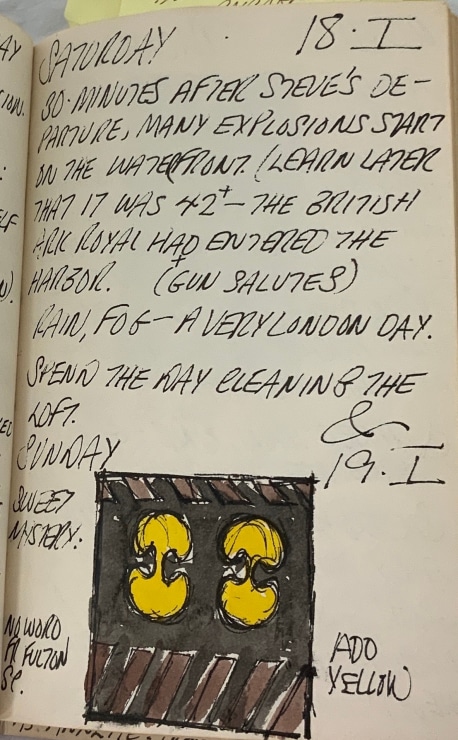 SATURDAY 18·I
30·MINUTES AFTER STEVE'S DE-
PARTURE, MANY EXPLOSIONS START
ON THE WATERFRONT. (LEARN LATER
THAT IT WAS 42+ - THE BRITISH
ARK ROYAL HAD ENTERED THE
HARBOR. + (GUN SALUTES)
RAIN, FOG - A VERY LONDON DAY.
SPEND THE DAY CLEANING THE
LOFT.
&
SUNDAY 19·I
SWEET
MYSTERY:
NO WORD
FR FULTON
ST.
ADD
YELLOW